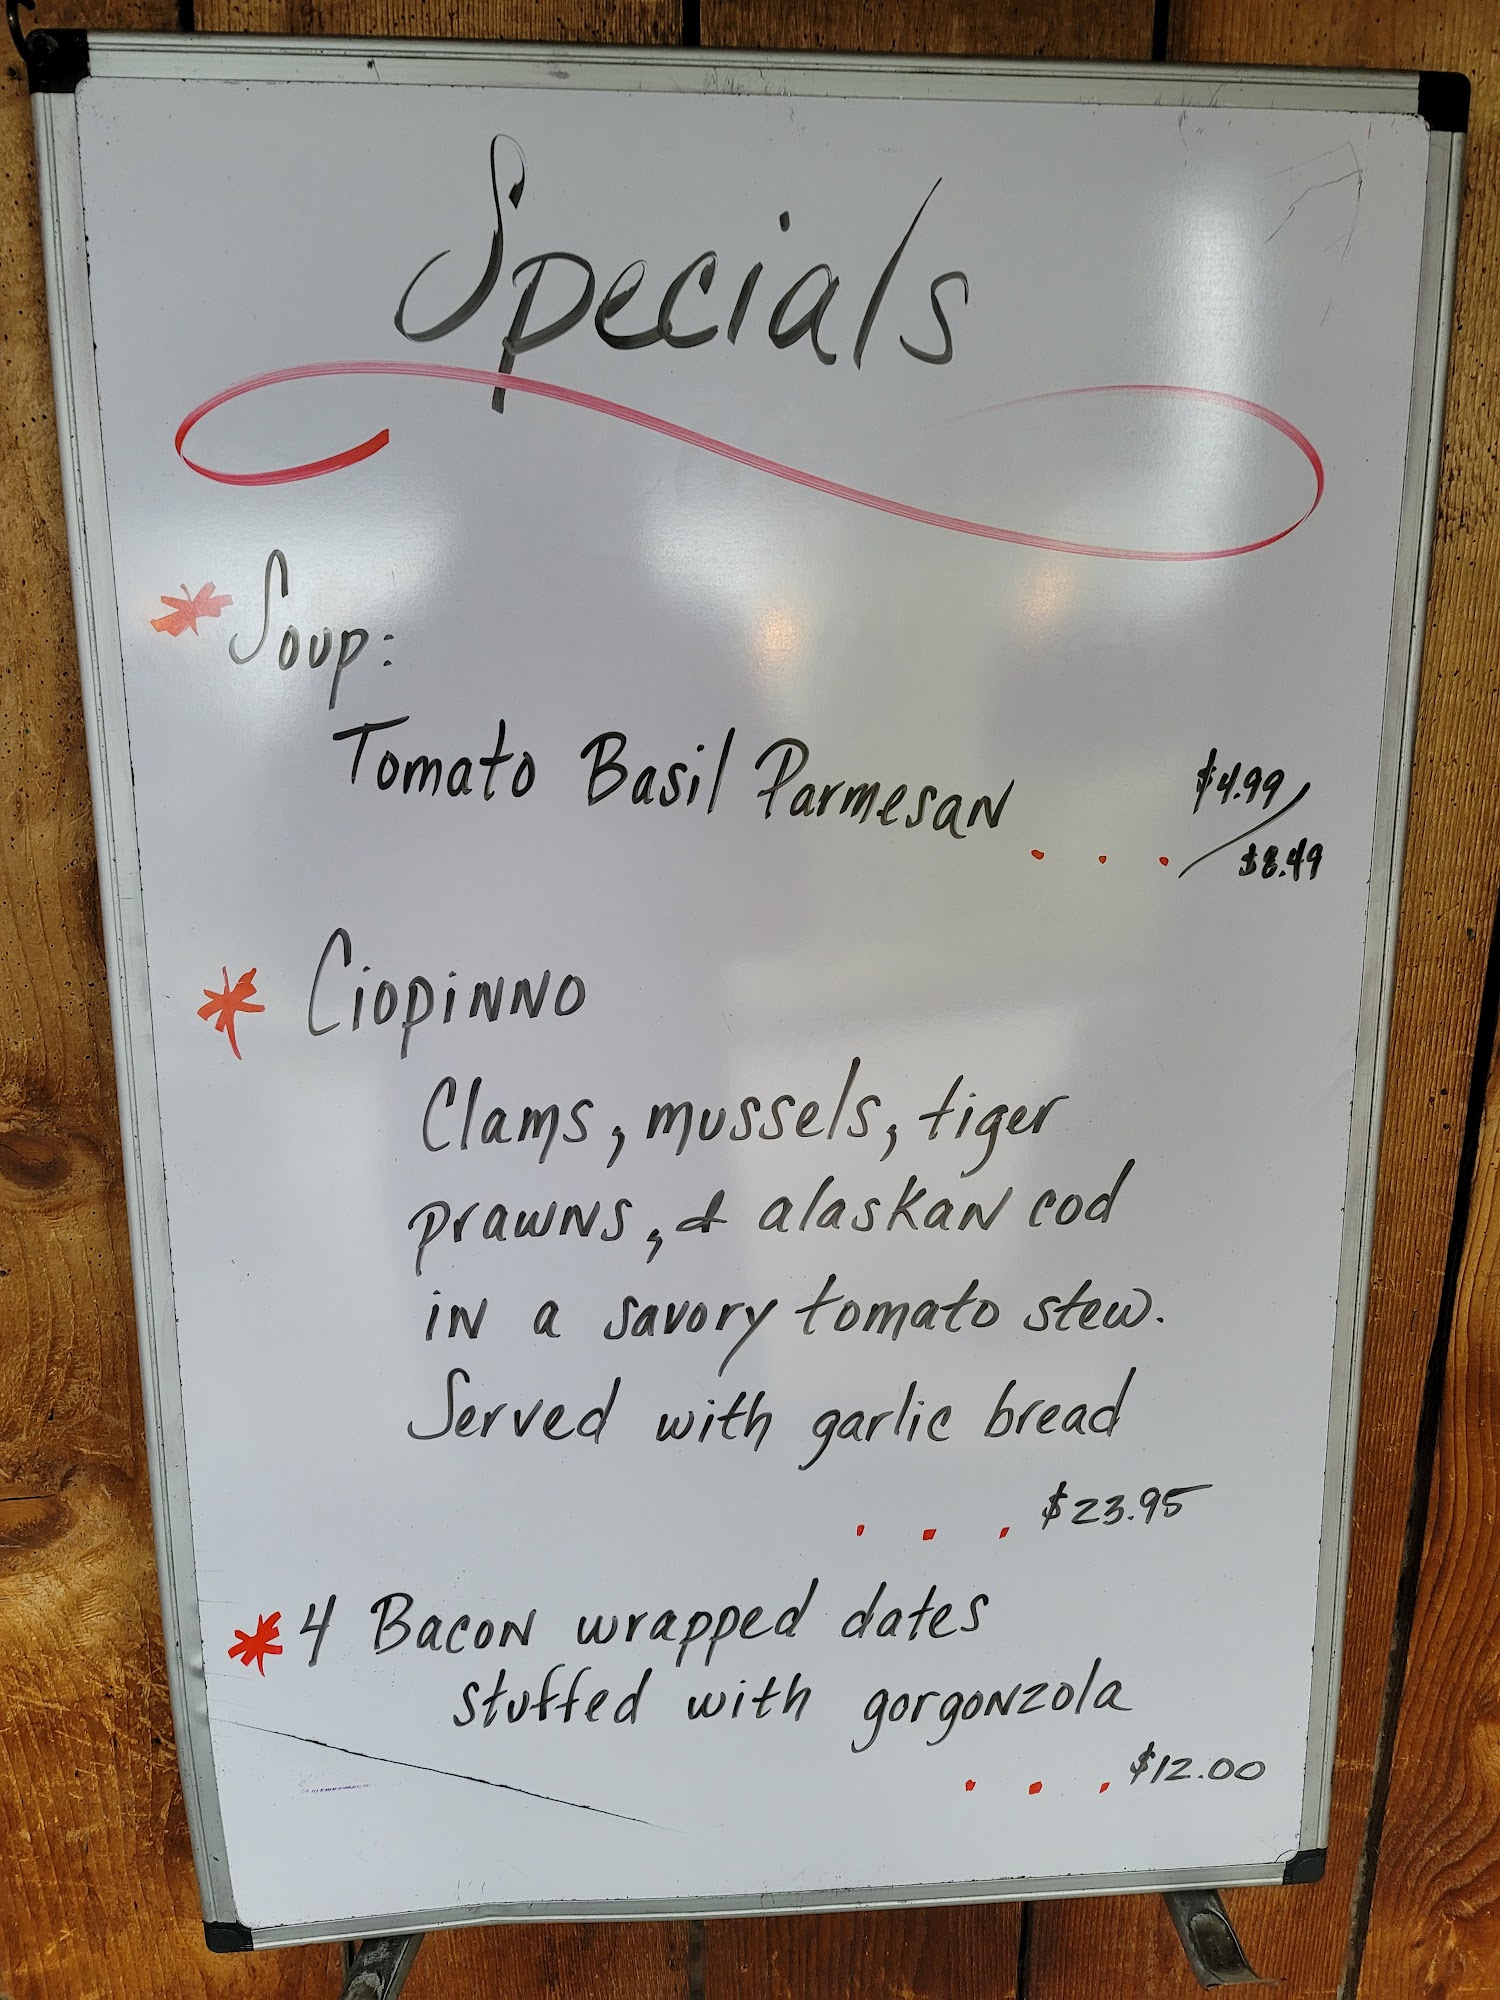 Specials
* Soup:
Tomato Basil Parmesan ... $4.99/$8.49
* Ciopinno
Clams, mussels, tiger
prawns, & alaskan cod
in a savory tomato stew.
Served with garlic bread
... $23.95
* 4 Bacon wrapped dates
stuffed with gorgonzola
... $12.00